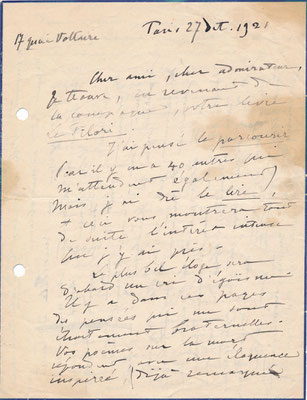 17 quai Voltaire
Paris, 27 Oct. 1921
Cher ami, cher admirateur,
Je trouve, en revenant de
la campagne, votre livre
le Pilori.
J'ai pensé le parcourir
(car il y en a 40 autres qui
m'attendent également)
Mais j'ai dû le lire,
et cela vous montrera tout
de suite l'intérêt intense
que j'y ai pris.
Le plus bel éloge sera
d'abord un cri d'égoïsme
Il y a dans ces pages
des pensées qui me sont
étroitement fraternelles.
Vos poèmes sur la mort
sont une éloquence
inspirée (déjà remarqué